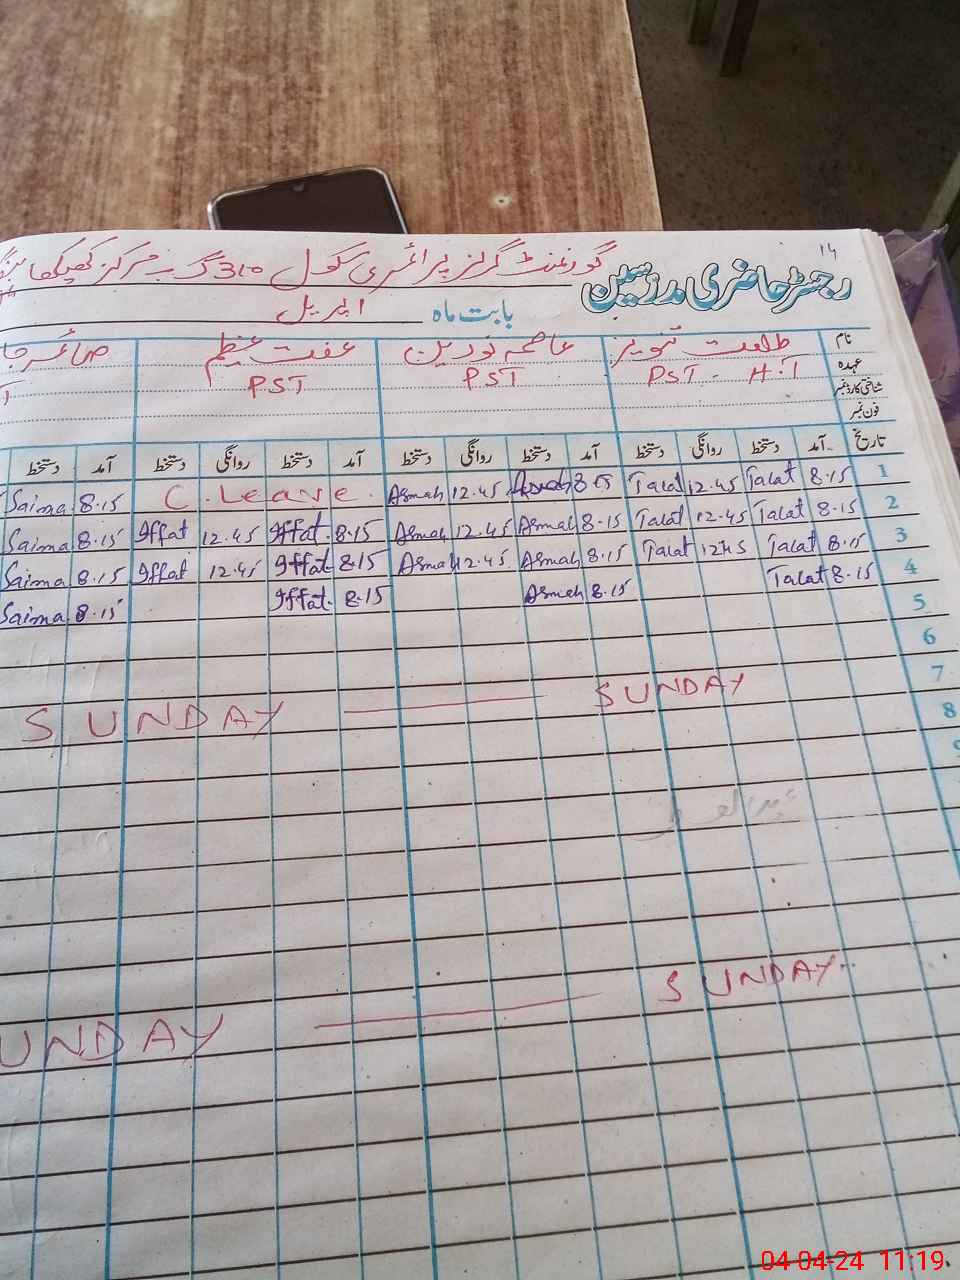 ۱۴
رجسٹر حاضری مدرسین گورنمنٹ گرلز پرائمری سکول 310 گ ب مرکز
بابت ماہ اپریل
نام طلعت تنویر عاصمہ نورین عفت عظیم صائمہ
عہدہ PST - H.T PST PST
شناختی کارڈ نمبر
فون نمبر
تاریخ آمد دستخط روانگی دستخط آمد دستخط روانگی دستخط آمد دستخط روانگی دستخط آمد دستخط
1 8.15 Talat 12.45 Talat 8.15 Asmah 12.45 Asmah C. Leave. 8.15 Saima
2 8.15 Talat 12.45 Talat 8.15 Asmah 12.45 Asmah 8.15 Iffat 12.45 Iffat 8.15 Saima
3 8.15 Talat 12.45 Talat 8.15 Asmah 12.45 Asmah 8.15 Iffat 12.45 Iffat 8.15 Saima
4 8.15 Talat 8.15 Asmah 8.15 Iffat 8.15 Saima
5
6
7 SUNDAY SUNDAY
8
SUNDAY UNDAY
04-04-24 11:19